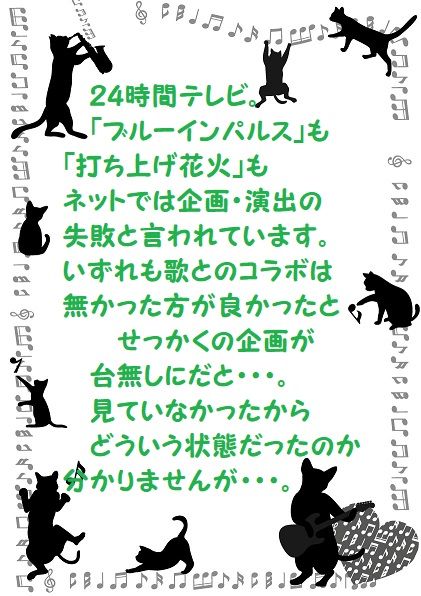 24時間テレビ。
「ブルーインパルス」も
「打ち上げ花火」も
ネットでは企画・演出の
失敗と言われています。
いずれも歌とのコラボは
無かった方が良かったと
せっかくの企画が
台無しにだと・・・。
見ていなかったから
どういう状態だったのか
分かりませんが・・・。